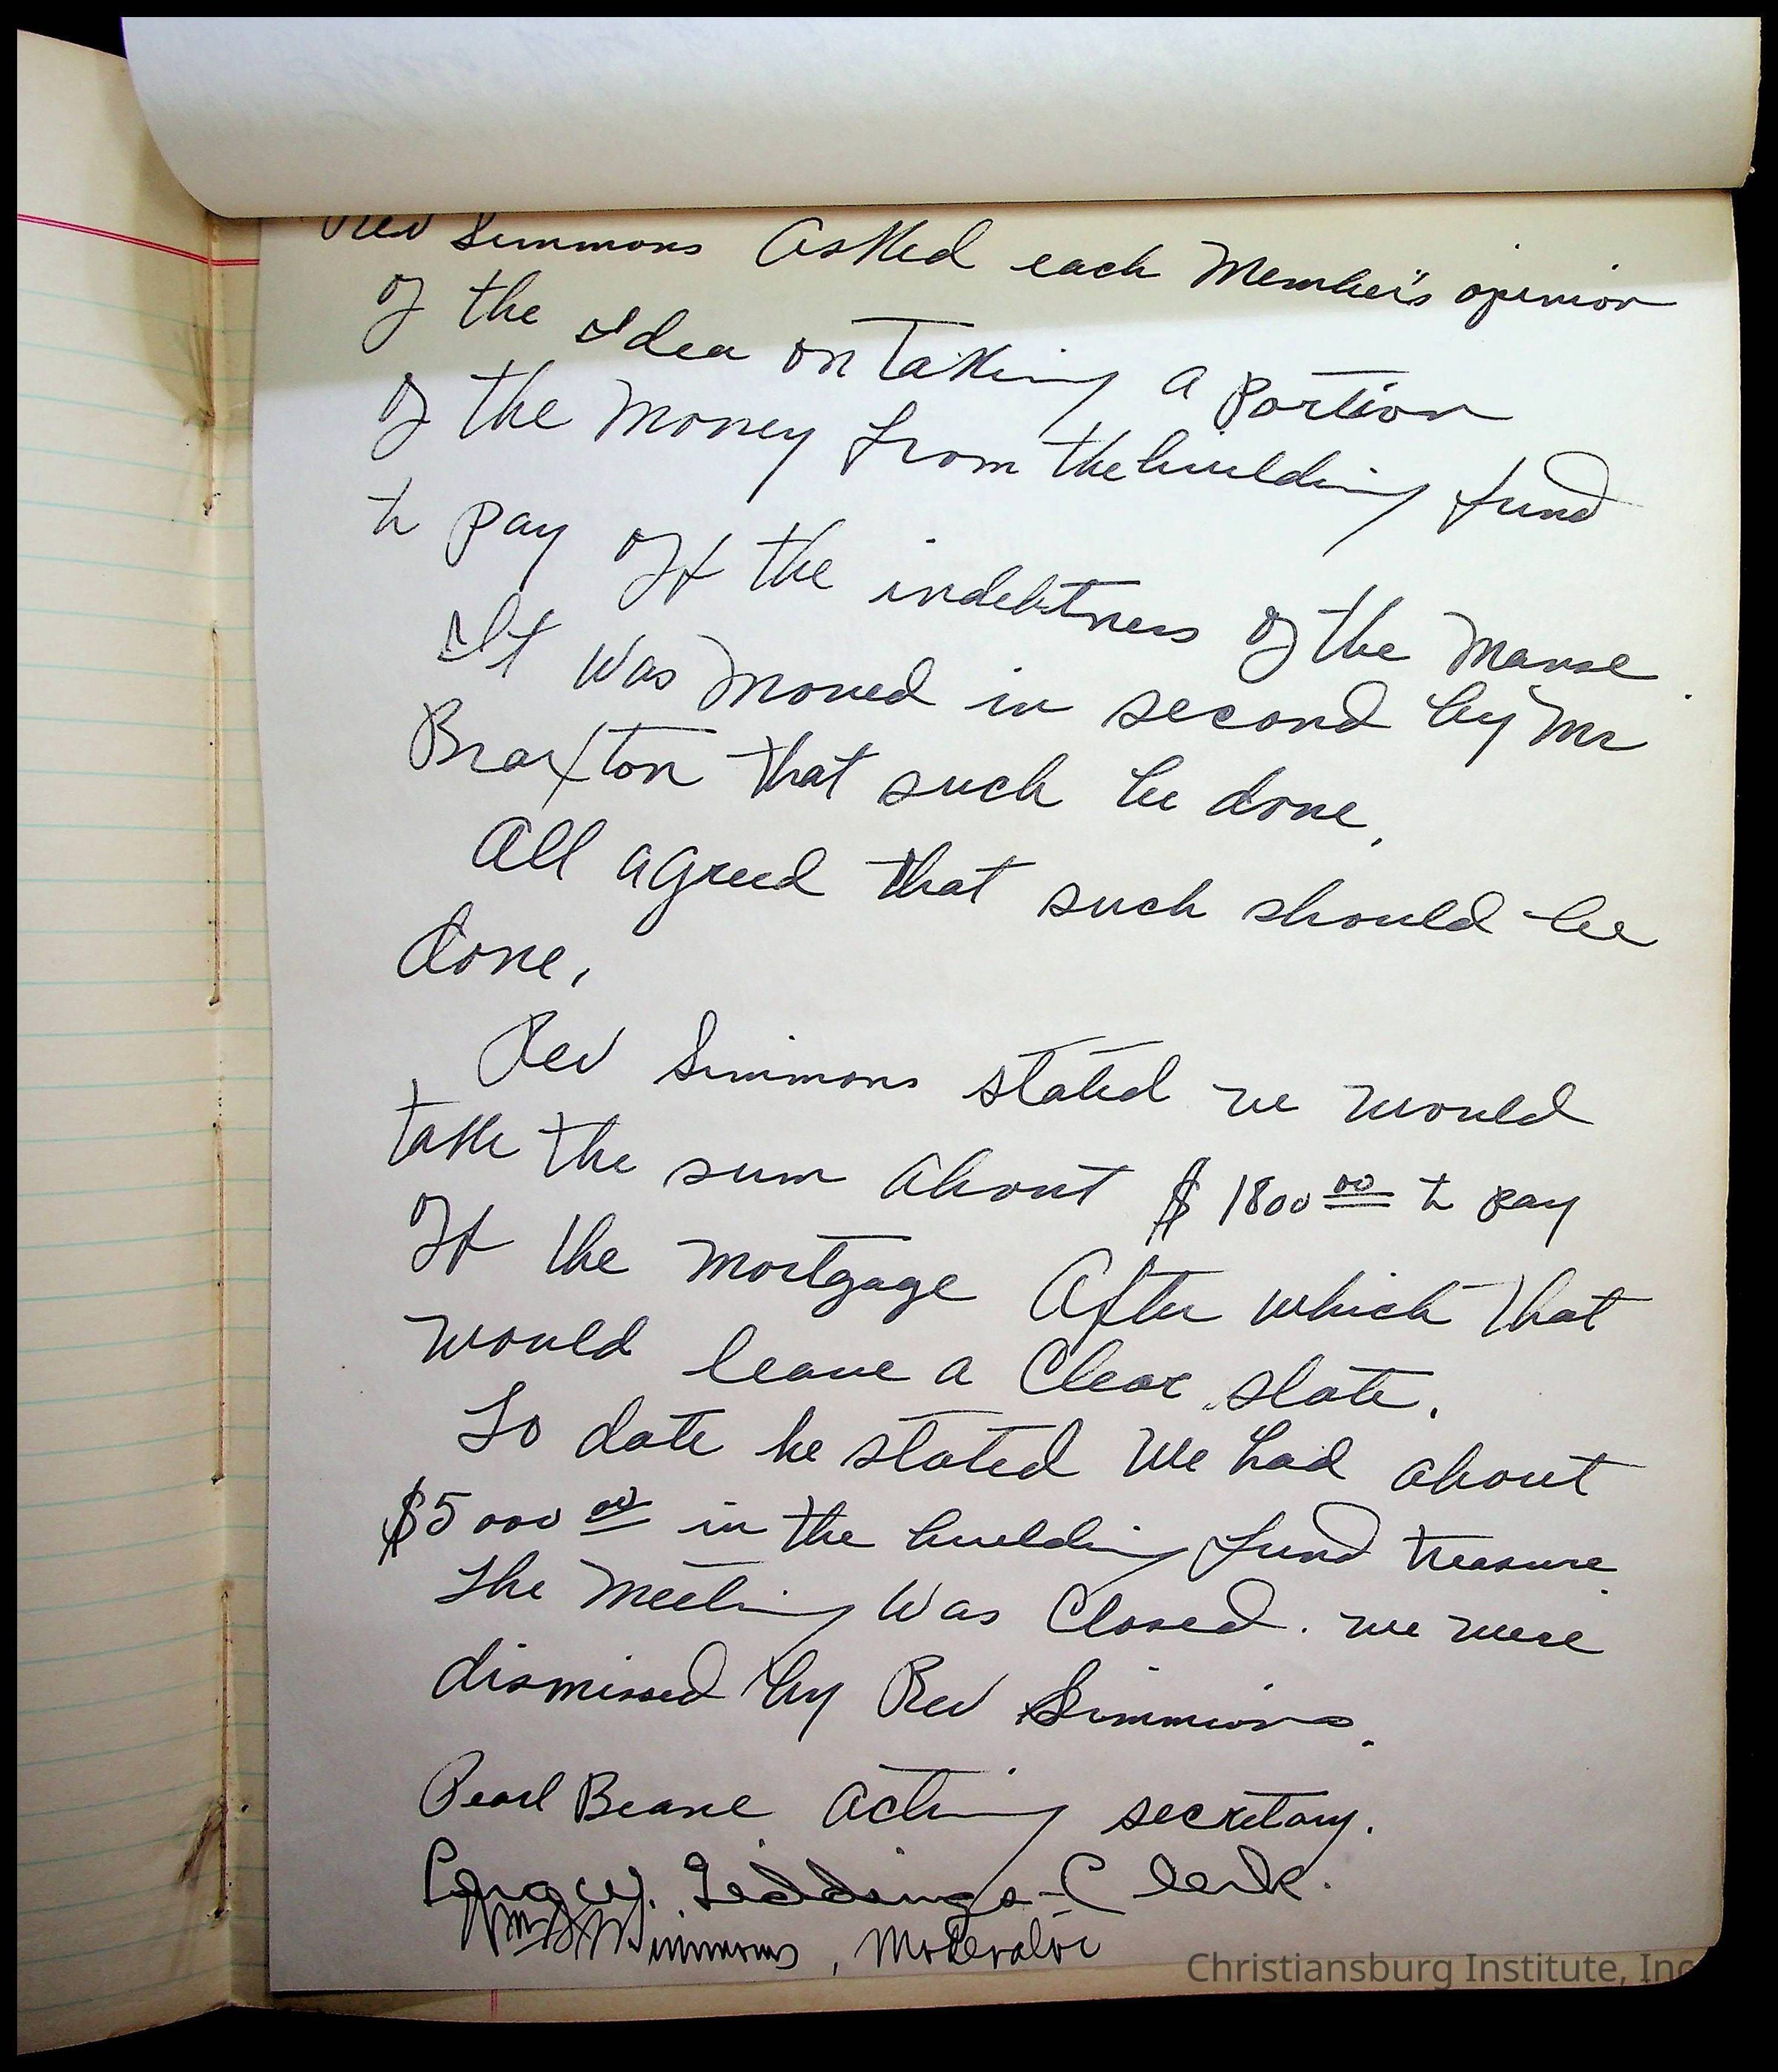 Rev Simmons Asked each Member's opinion
of the Idea on Taking a portion
of the Money from the building fund
to pay off the indebtness of the Manse.
It was moved in second by Mr
Braxton that such be done.
All agreed that such should be
done.
Rev Simmons stated we would
take the sum about $1800 00 to pay
off the mortgage After which that
would leave a Clear slate.
To date he stated We had about
$5000 00 in the building fund treasure.
The Meeting Was Closed. we were
dismissed by Rev Simmions.
Pearl Beane Acting secretary.
W. Giddings - Clerk.
Simmons, Moderator
Christiansburg Institute, Inc